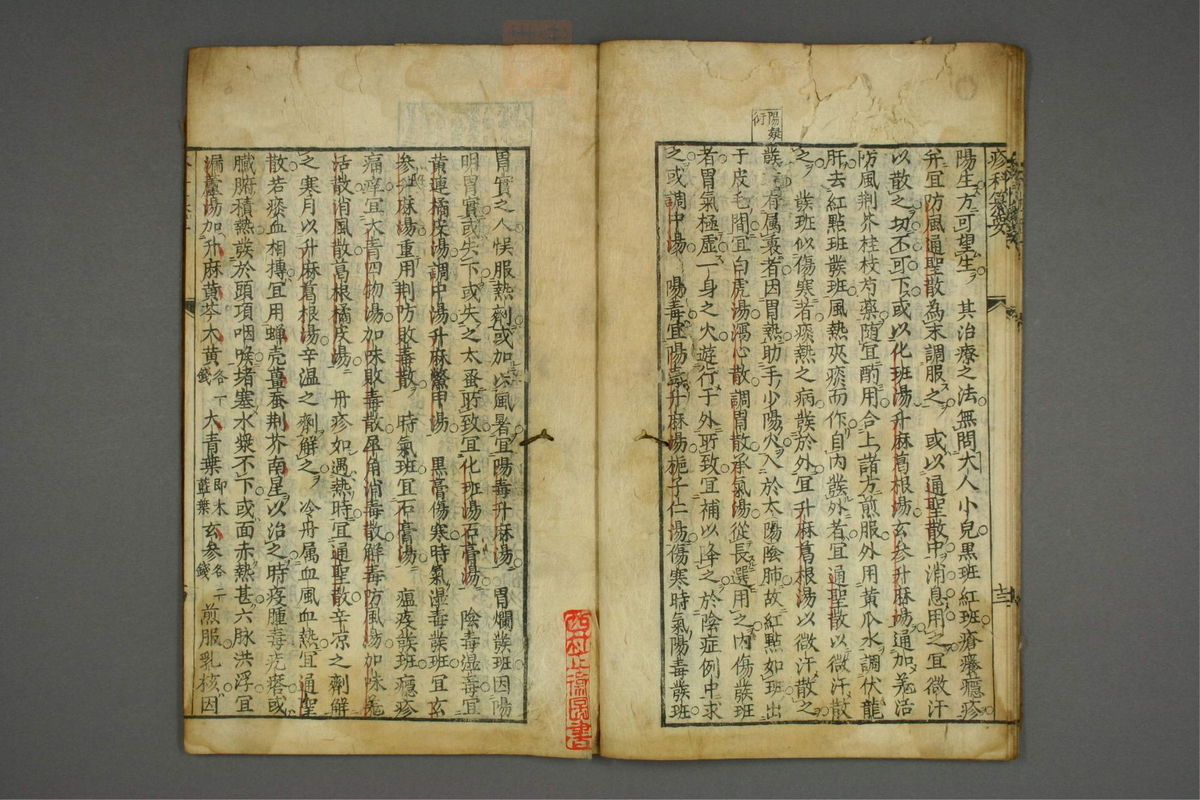 疹科纂要
陽生方可望生其治療之法無問大人小兒黒班紅班瘡癢癮疹
并宜防風通聖散為末調服之或以通聖散中消息用之宜微汗
以散之切不可下或以化班湯升麻葛根湯玄參升麻湯通加羗活
防風荆芥桂枝芍藥随宜酌用合上諸方煎服外用黄瓜水調伏龍
肝去紅點班發班風熱夾痰而作自内發外者宜通聖散以微汗散
之發班似傷寒者痰熱之病發於外宜升麻葛根湯以微汗散之
陽疑衍
發有属裏者因胃熱助手少陽火入於太陽陰肺故紅點如班出
于皮毛間宜白虎湯瀉心散調胃散承氣湯從長選用之内傷發班
者胃氣極虚一身之火遊行于外所致宜補以降之於陰症例中求
之或調中湯陽毒宜陽毒升麻湯梔子仁湯傷寒時氣陽毒發班
胃實之人悞服熱劑或加以風暑宜陽毒升麻湯胃爛發班因陽
明胃實或失下或失之太蚤所致宜化班湯石膏湯陰毒湿毒宜
黄連橘皮湯調中湯升麻鱉甲湯黒膏傷寒時氣湿毒發班宜玄
參升麻湯重用荆防敗毒散時氣班宜石膏湯瘟疫發班癮疹
痛痒宜大青四物湯加味敗毒散犀角消毒散解毒防風湯加味羗
活散消風散葛根橘皮湯丹疹如遇熱時宜通聖散辛凉之劑解
之寒月以升麻葛根湯辛温之劑解之冷丹属血風血熱宜通聖
散若痰血相摶宜用蝉壳薑蚕荆芥南星以治之時疫腫毒疙瘩或
臓腑積熱發於頭項咽喉堵塞水漿不下或面赤熱甚六脉洪浮宜
漏蘆湯加升麻黄芩大黄各一錢大青葉即木藍葉玄參各二錢煎服乳核因